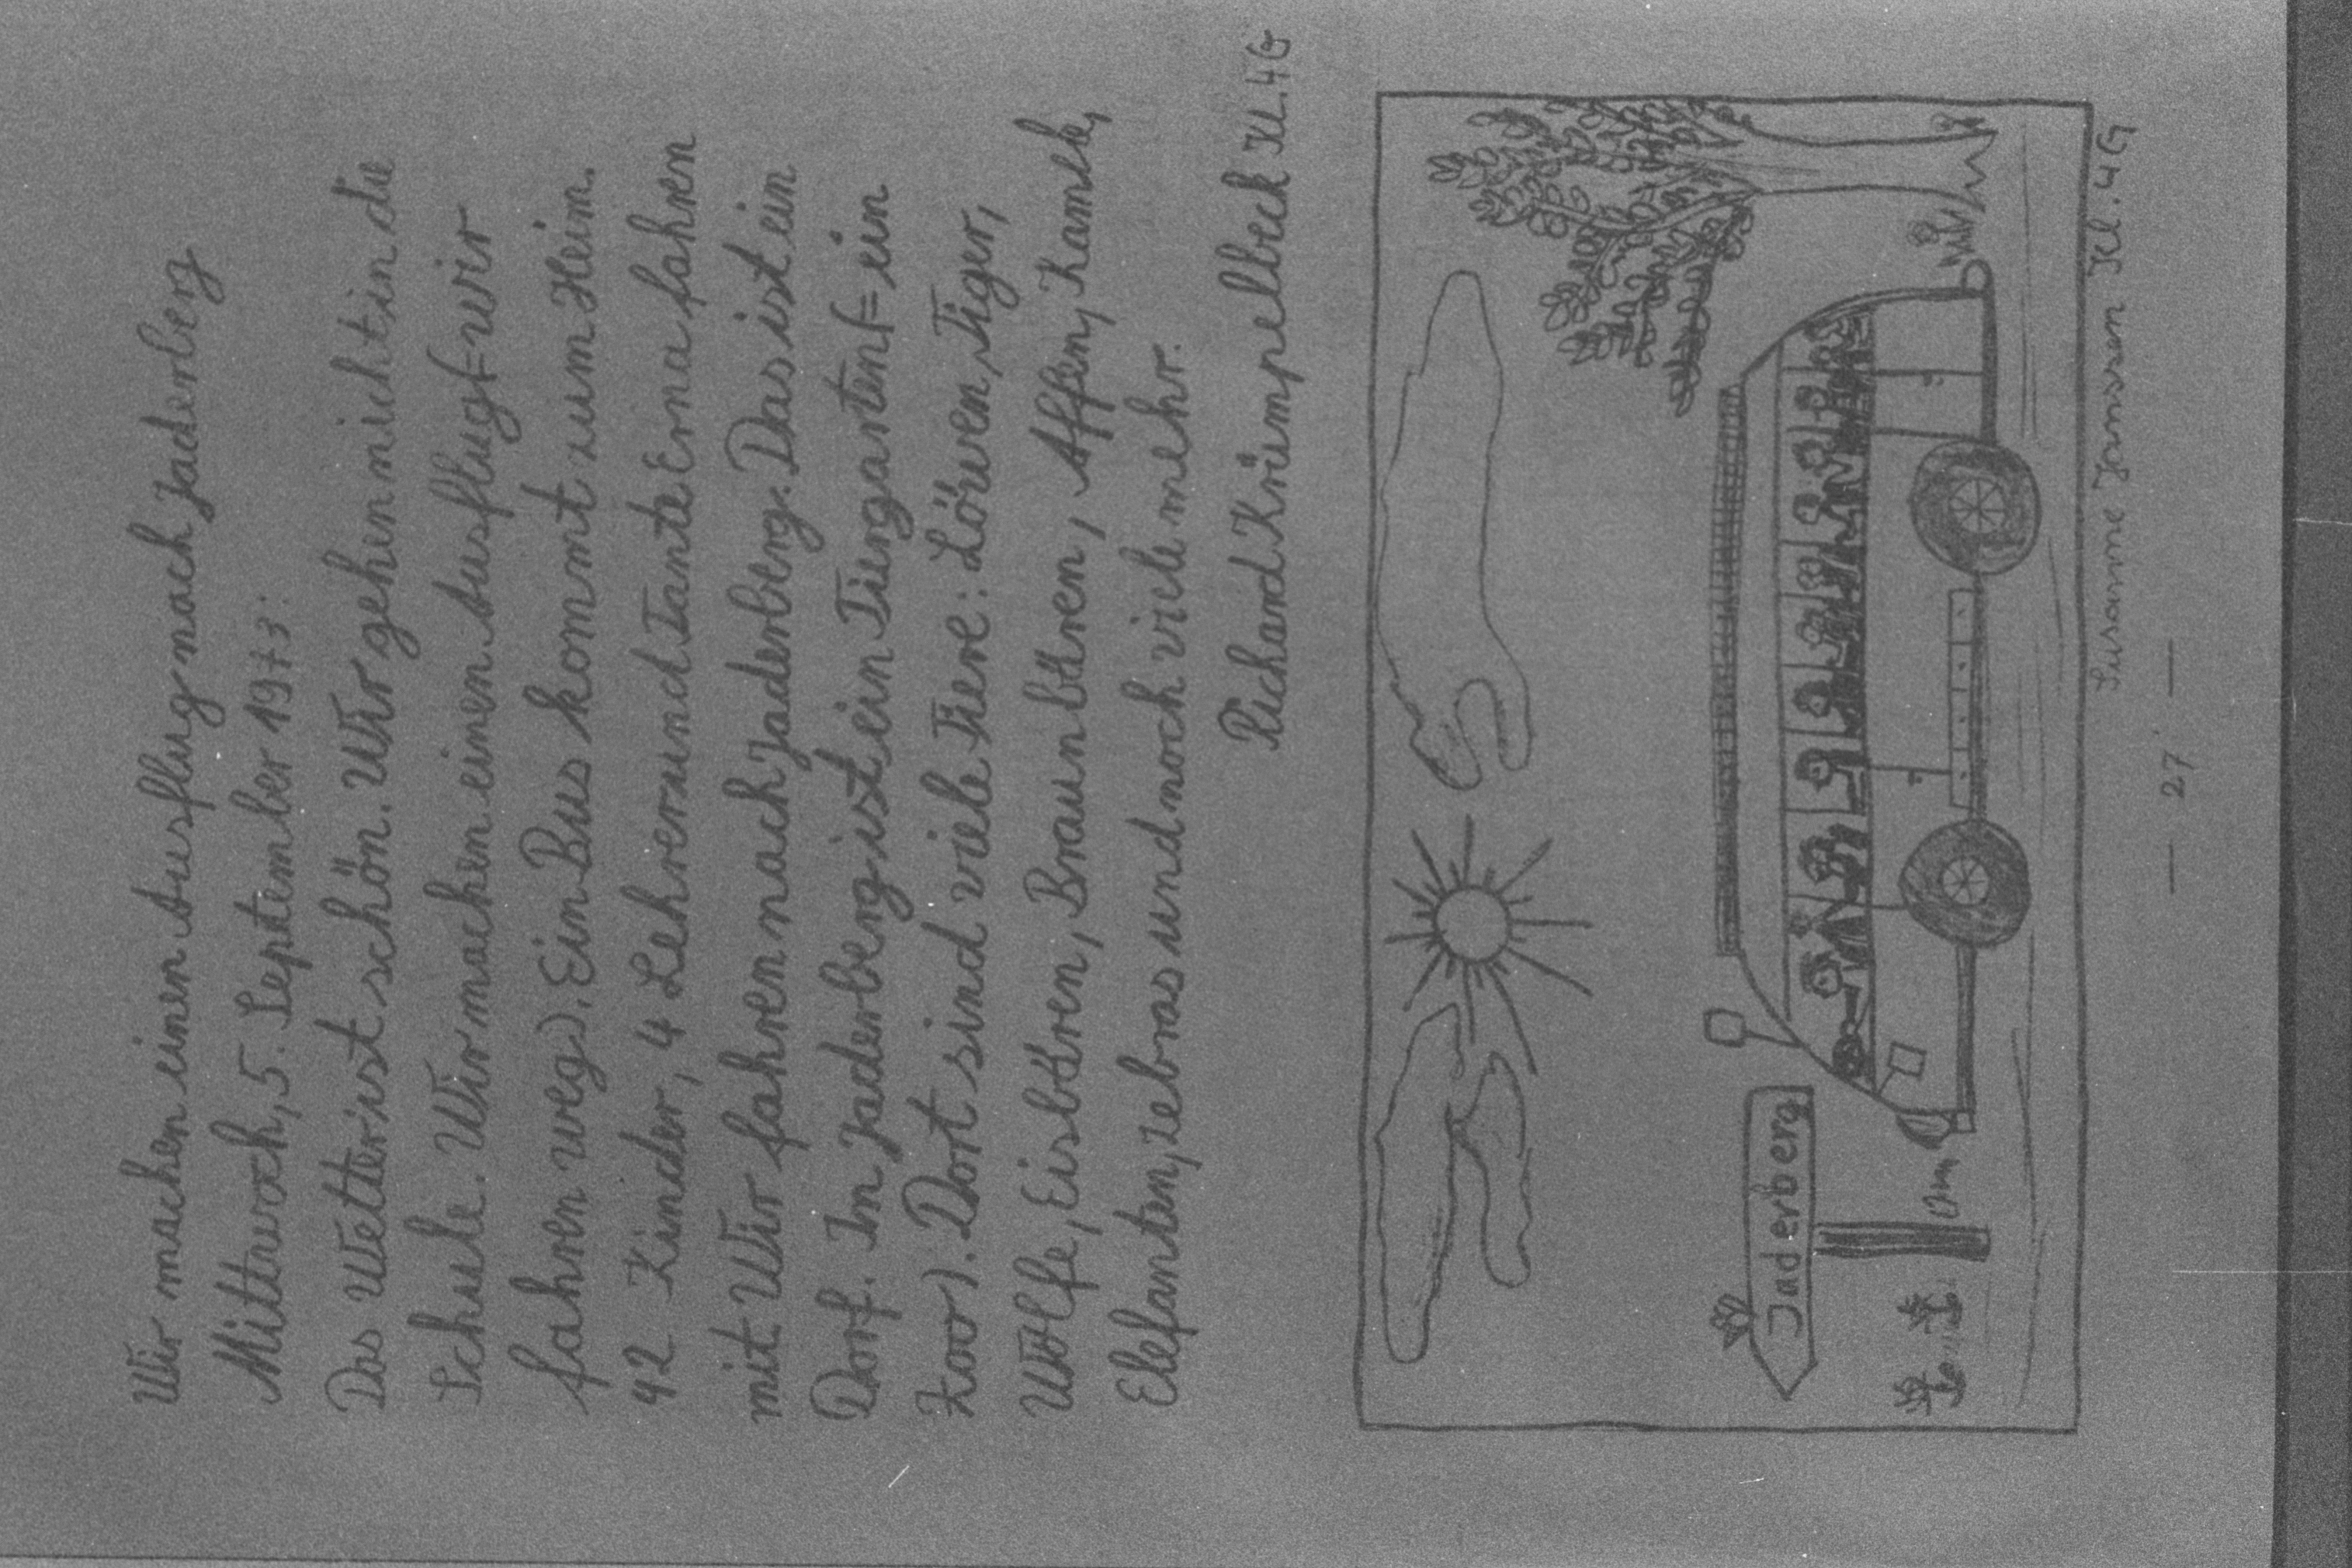 Wir machen einen Ausflug nach Jaderberg
Mittwoch, 5. September 1973:
Das Wetter ist schön. Wir gehen nicht in die
Schule. Wir machen einen Ausflug (= wir
fahren weg). Ein Bus kommt zum Heim.
42 Kinder, 4 Lehrer und Tante Erna fahren
mit Wir fahren nach Jaderberg. Das ist ein
Dorf. In Jaderberg ist ein Tiergarten (= ein
Zoo). Dort sind viele Tiere: Löwen, Tiger,
Wölfe, Eisbären, Braunbären, Affen, Kamele,
Elefanten, Zebras und noch viele mehr.
Richard Krümpelbeck Kl. 4G
Jaderberg
Susanne Janssen Kl. 4G
— 27 —